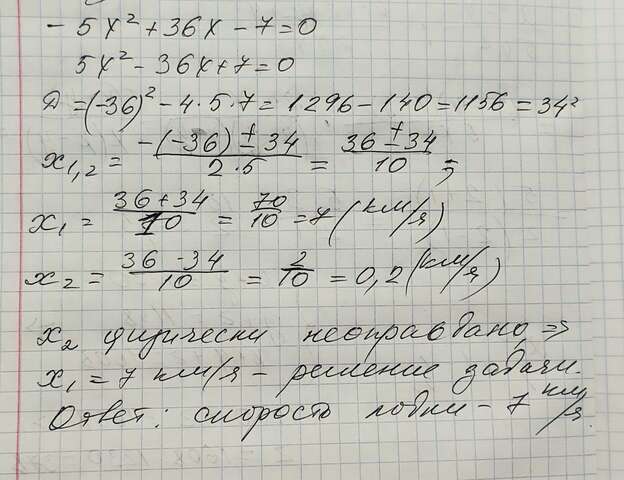 - 5x² + 36x - 7 = 0
5x² - 36x + 7 = 0
Д = (-36)² - 4·5·7 = 1296 - 140 = 1156 = 34²
x₁,₂ = (-(-36) ± 34)/(2·5) = (36 ± 34)/10 ;
x₁ = (36 + 34)/10 = 70/10 = 7 (км/я)
x₂ = (36 - 34)/10 = 2/10 = 0,2 (км/я)
x₂ физически неоправдано, =>
x₁ = 7 км/я - решение задачи.
Ответ: скорость лодки - 7 км/я.